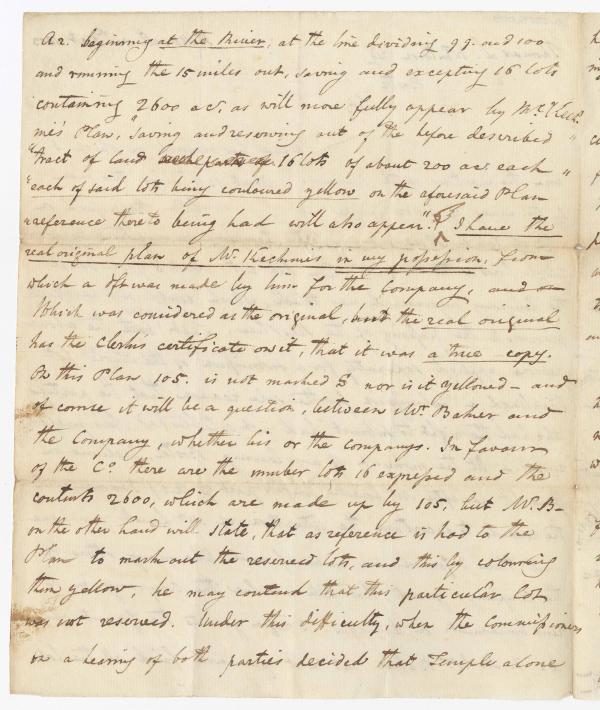 A 2. beginning at the River, at the line dividing 99. and 100
and running the 15 miles out, saving and excepting 16 lots
containing 2600 acs. as will more fully appear by McKech-
nie's Plan, "saving and reserving out of the before described
"tract of land 16 lots of about 200 acs each
"each of said lots being couloured yellow on the aforesaid Plan
"reference thereto being had will also appear". I have the
real original plan of Mr. Kechnie's in my possession, from
which a dft was made by him for the Company, and
Which was considered as the original, but the real original
has the Clerks certificate on it, that it was a true copy.
On this Plan 105. is not marked S nor is it yellowed - and
of course it will be a question, between Mr Baker and
the Company, whether his or the companys. In favour
of the Co. there are the number lots 16 expressed and the
contents 2600, which are made up by 105, but Mr. B-
on the other hand will state, that as reference is had to the
Plan to mark out the reserved lots, and this by colouring
them yellow, he may contend that this particular Lot
was not reserved. Under this difficulty, when the commissioners
on a hearing of both parties decided that Temple alone